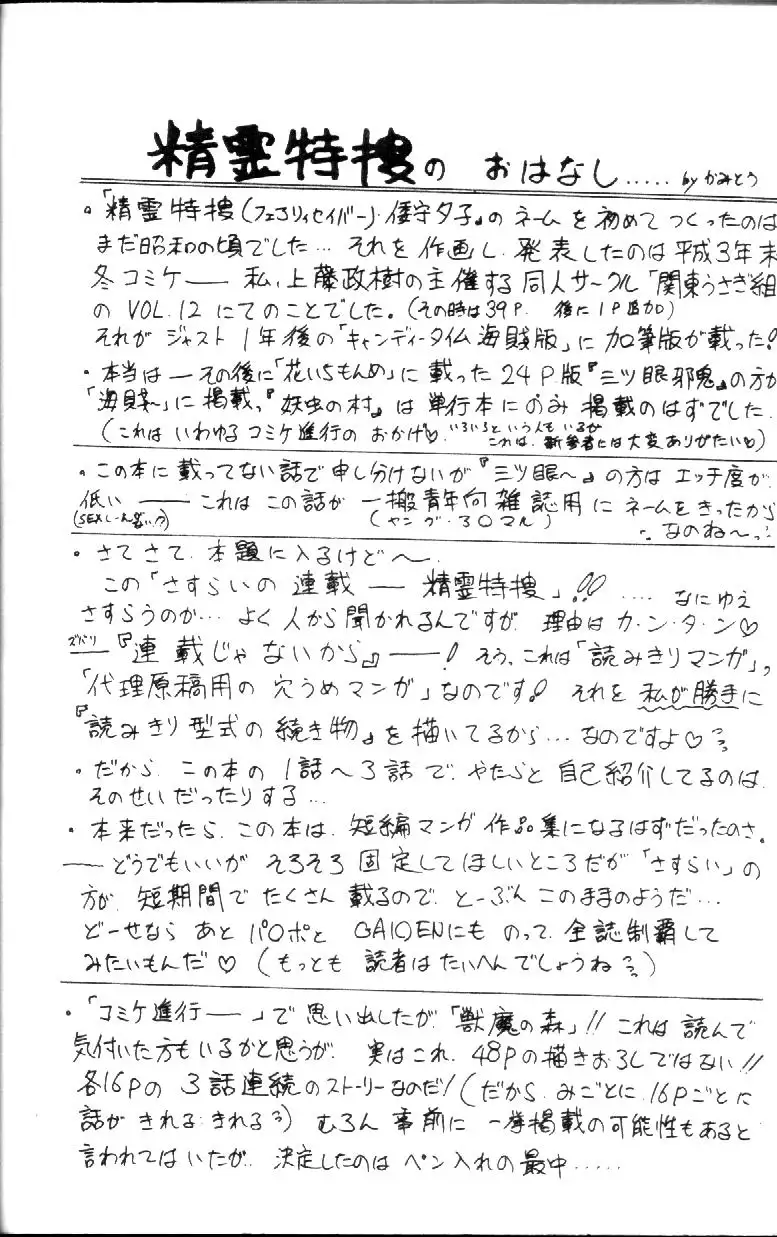 精霊特捜の おはなし..... by かみとう
。「精霊特捜(フェアリィセイバー)・倭守夕子』のネームを初めてつくったのは
まだ昭和の頃でした… それを作画し、発表したのは平成3年末
冬コミケ── 私、上藤政樹の主催する同人サークル「関東うさぎ組
のVOL.12にてのことでした。(その時は39P. 後に1P追加)
それが ジャスト1年後の「キャンディータイム海賊版」に加筆版が載った!
・本当は─その後に「花いちもんめ」に載った24P.版『三ツ眼邪鬼』の方が
「海賊〜」に掲載、『妖虫の村』は単行本にのみ掲載のはずでした.
(これは いわゆるコミケ進行の おかげ♡. いろいろという人もいるが これは、新参者には大変ありがたい♡)
。この本に載ってない話で申し分けないが『三ツ眼〜』の方はエッチ度が
低い ── これは この話が 一搬青年向雑誌用に ネームをきったから
(SEXシーン名いつ?) (ヤング・30マル) なのね〜っ
・さてさて、本題に入るけど〜.
この「さすらいの連載──精霊特捜」!! .... なにゆえ
さすらうのか… よく人から聞かれるんですが 理由はカ・ン・タ・ン♡
ズバリ──『連載じゃないから』──! そう、これは「読みきりマンガ」、
「代理原稿用の穴うめマンガ」なのです! それを 私が勝手に
『読みきり型式の続き物』を描いてるから… なのですよ♡
・だから この本の1話〜3話で、やたらと自己紹介してるのは
そのせいだったりする…
・本来だったら、この本は、短編マンガ作品集になるはずだったのさ.
──どうでもいいが そろそろ固定してほしいところだが「さすらい」の
方が 短期間で たくさん載るので、と〜ぶん このままのようだ…
ど〜せなら あと パロポと GAIDENにも のって 全誌制覇して
みたいもんだ♡ (もっとも 読者はたいへんでしょうね)
・「コミケ進行──」で思い出したが「獣魔の森」!! これは読んで
気付いた方もいるかと思うが 実はこれ、48Pの描きおろしではない!!
各16Pの 3話連続のストーリーなのだ!(だから、みごとに 16Pごとに
話が きれる きれる) むろん 事前に 一挙掲載の可能性もあると
言われてはいたが 決定したのは ペン入れの最中.....